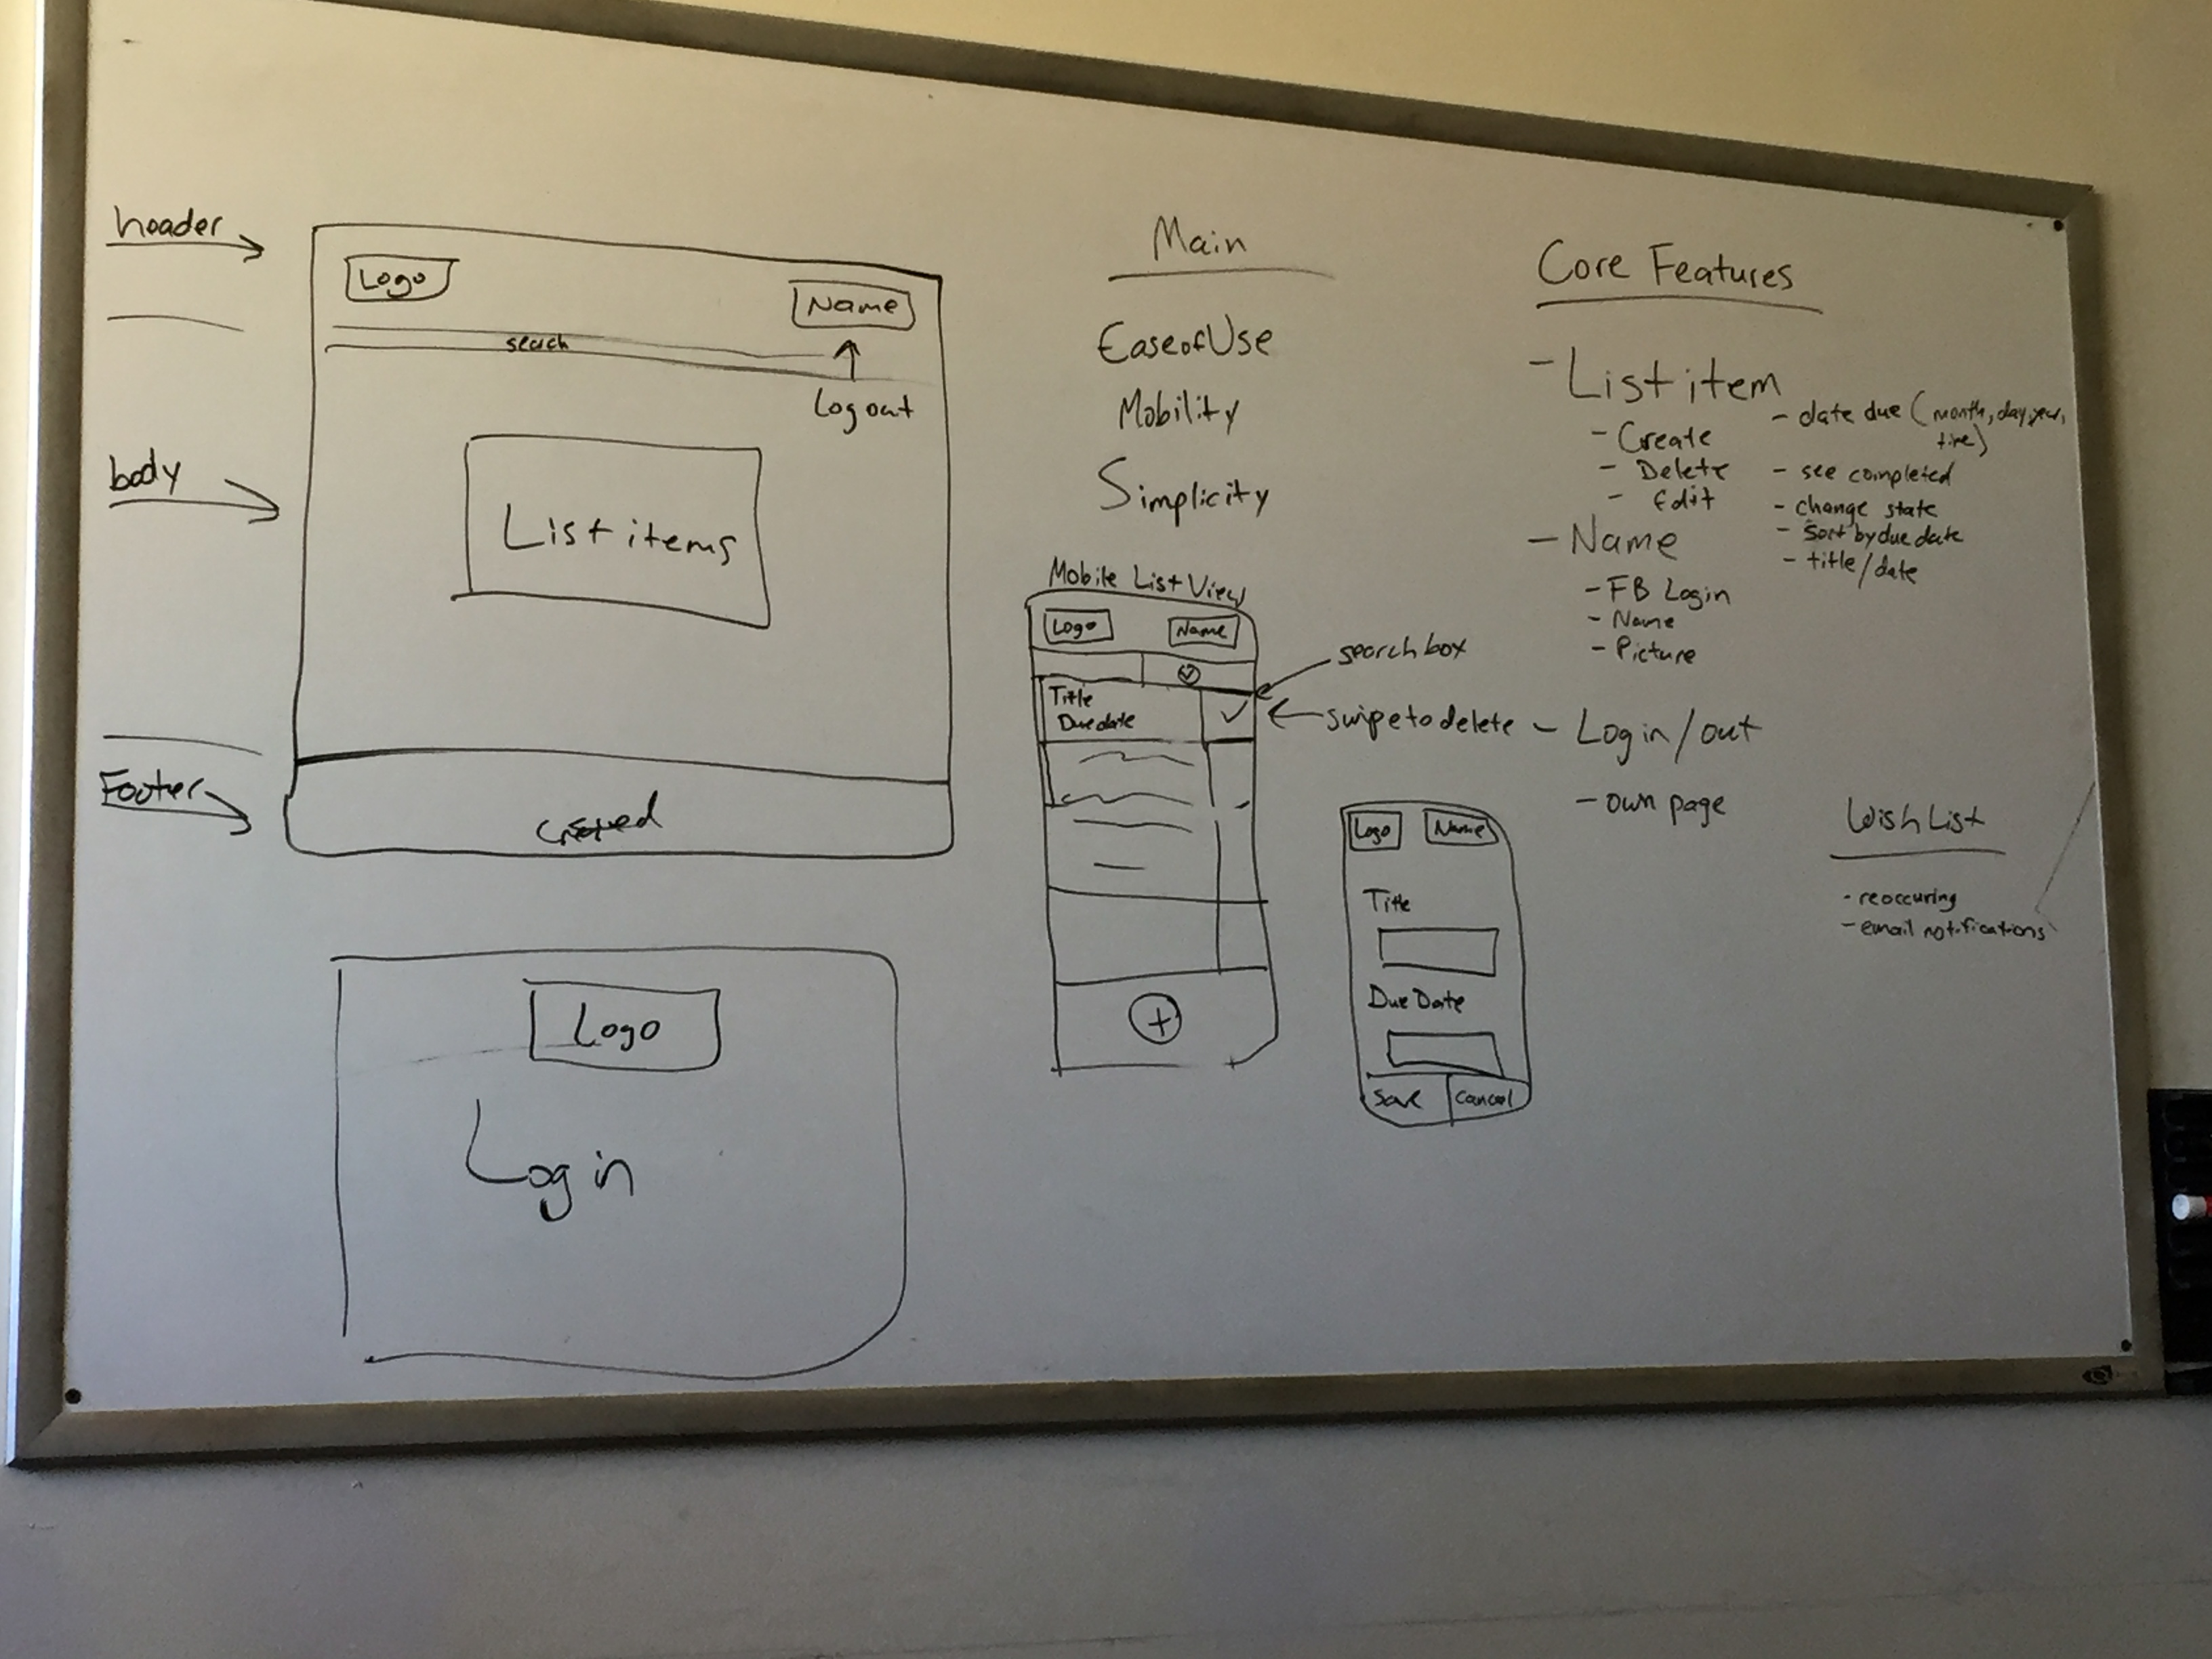 header
Logo
Name
search
Logout
body
List items
Footer
Logo
Login
Main
Ease of Use
Mobility
Simplicity
Mobile List View
Logo
Name
search box
Title
Due date
swipe to delete
+
Logo
Name
Title
Due Date
Save
Cancel
Core Features
- List item
- Create
- Delete
- Edit
- date due (month, day, year,
time)
- see completed
- change state
- sort by due date
- title/date
- Name
- FB Login
- Name
- Picture
- Login/out
- own page
Wish List
- reoccuring
- email notifications